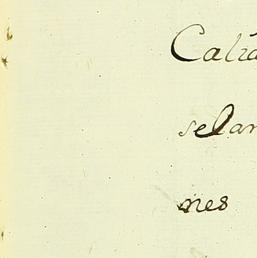 Calid
selan
nes